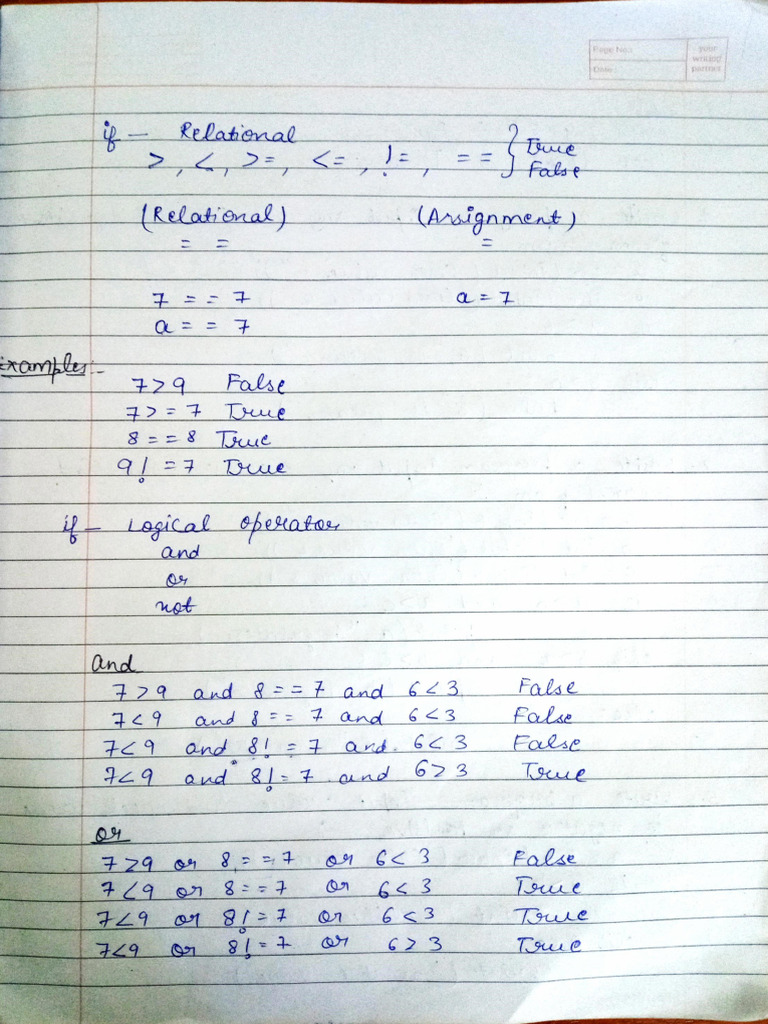 Page No.:
Date:
your
writing
partner
if — Relational
>, <, >=, <=, !=, == } True
False
(Relational) (Assignment)
== =
7 == 7 a = 7
a == 7
Examples:-
7>9 False
7>=7 True
8==8 True
9!=7 True
if — Logical operator
and
or
not
and
7>9 and 8==7 and 6<3 False
7<9 and 8==7 and 6<3 False
7<9 and 8!=7 and 6<3 False
7<9 and 8!=7 and 6>3 True
or
7>9 or 8==7 or 6<3 False
7<9 or 8==7 or 6<3 True
7<9 or 8!=7 or 6<3 True
7<9 or 8!=7 or 6>3 True